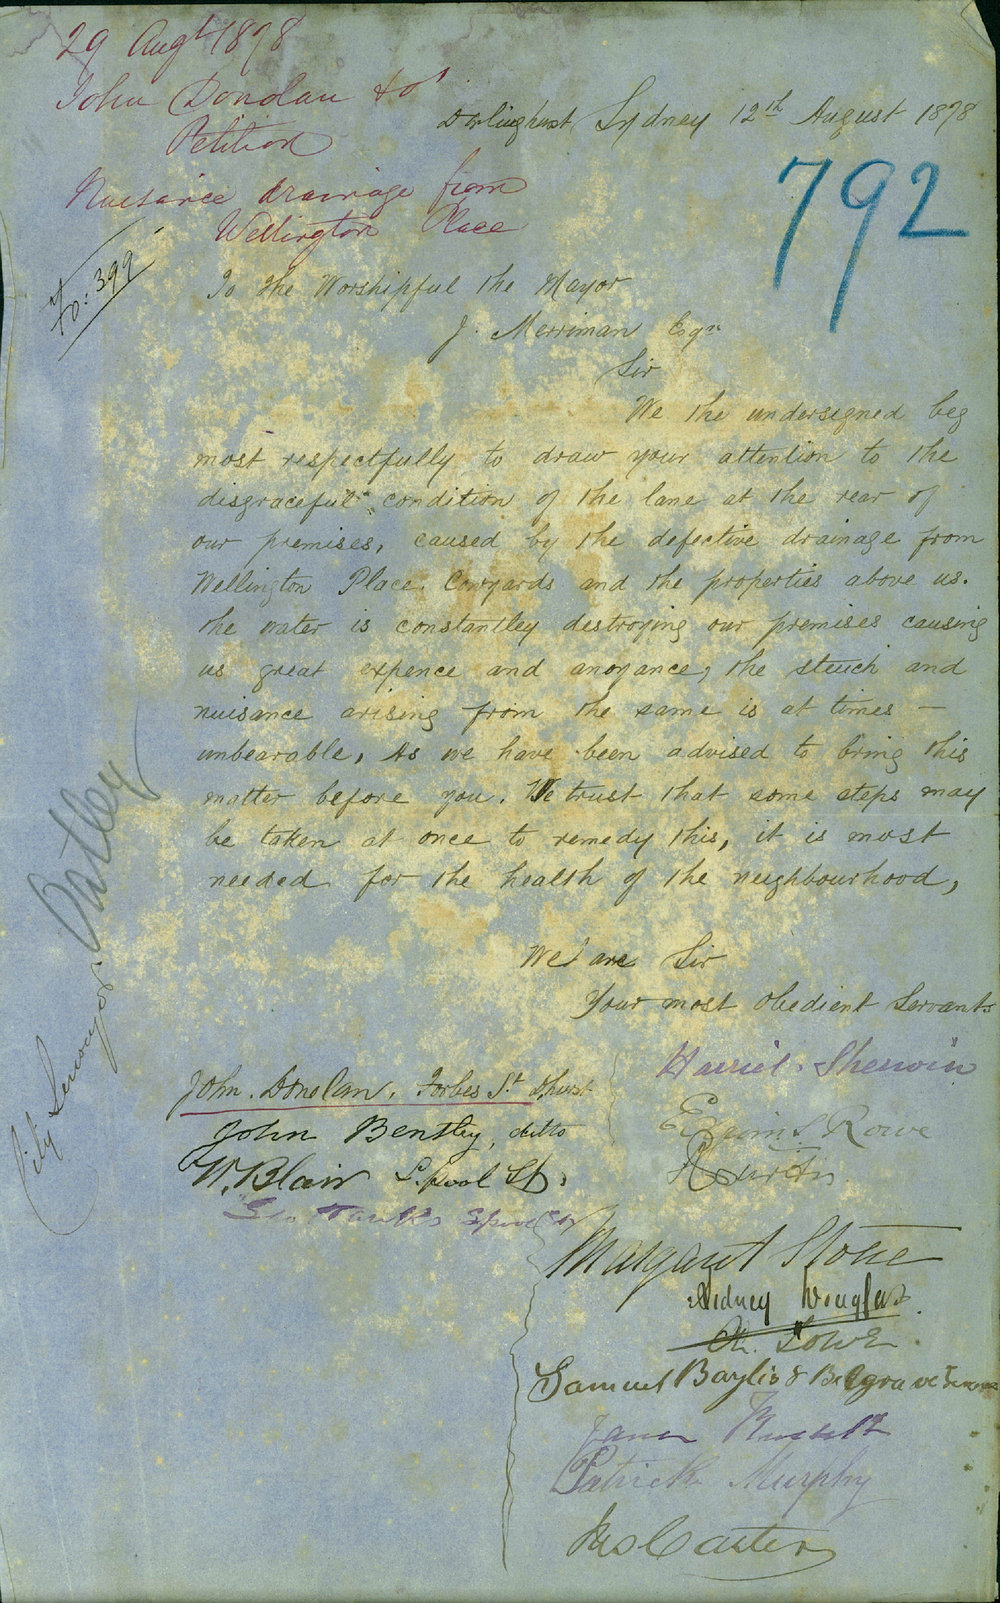 29 Augt 1878
John Donolan & ors
Petition
Nuisance drainage from
Wellington Place
Darlinghurst, Sydney 12th August 1878
792
Fo: 399
To the Worshipful the Mayor
J. Merriman Esqr
Sir
We the undersigned beg
most respectfully to draw your attention to the
disgraceful condition of the lane at the rear of
our premises, caused by the defective drainage from
Wellington Place. Cowyards and the properties above us.
the water is constantley destroying our premises causing
us great expence and anoyance, the stench and
nuisance arising from the same is at times —
unbearable, As we have been advised to bring this
matter before you. We trust that some steps may
be taken at once to remedy this, it is most
needed for the health of the neighbourhood,
We are Sir
Your most obedient Servants
City Surveyor
John. Donolan. Forbes St D.hurst
John Bentley, ditto
W. Blair L.pool St.
Geo Hawks
Harriet. Sherwin
Rowe
Margaret Stone
Sidney
Ch. Lowe
Samuel Baylis 8 Belgrave Terrace
James Russell
Patrick Murphy
Jas Carter